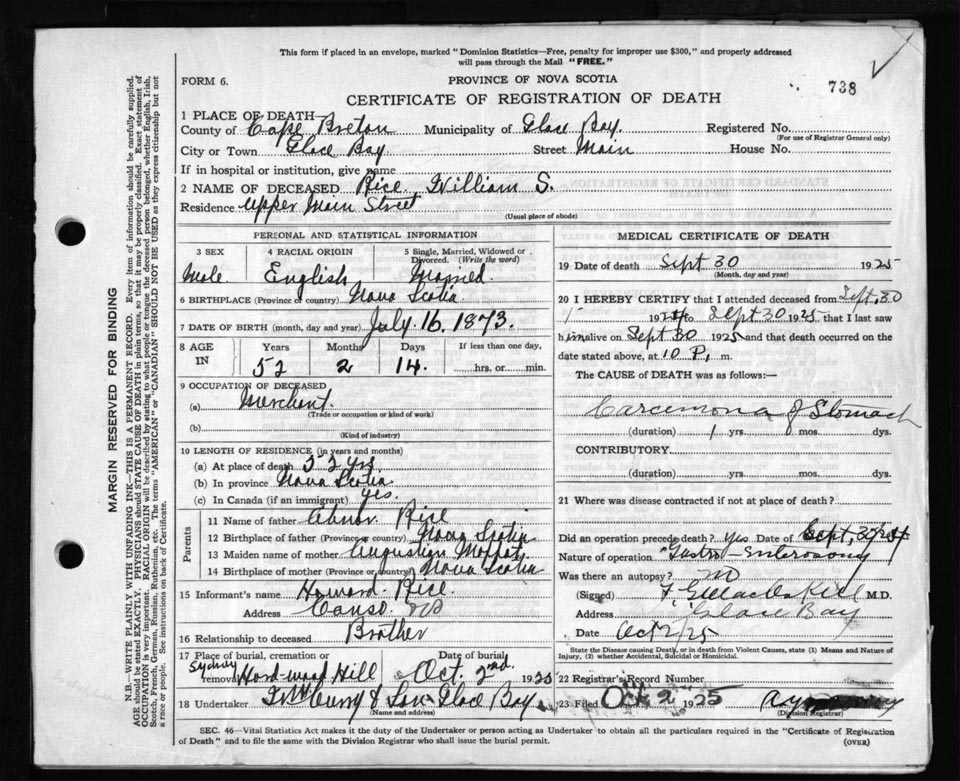 This form if placed in an envelope, marked "Dominion Statistics—Free, penalty for improper use $300," and properly addressed
will pass through the Mail "FREE."
FORM 6.
PROVINCE OF NOVA SCOTIA
738
CERTIFICATE OF REGISTRATION OF DEATH
1 PLACE OF DEATH—
County of Cape Breton Municipality of Glace Bay. Registered No.
(For use of Registrar General only)
City or Town Glace Bay Street Main House No.
If in hospital or institution, give name
2 NAME OF DECEASED Rice, William S.
Residence Upper Main Street
(Usual place of abode)
PERSONAL AND STATISTICAL INFORMATION
3 SEX 4 RACIAL ORIGIN 5 Single, Married, Widowed or Divorced. (Write the word)
Male English Married.
6 BIRTHPLACE (Province or country) Nova Scotia
7 DATE OF BIRTH (month, day and year) July. 16. 1873.
8 AGE IN Years Months Days If less than one day,
52 2 14. hrs. or min.
9 OCCUPATION OF DECEASED
(a) Merchant.
(Trade or occupation or kind of work)
(b)
(Kind of industry)
10 LENGTH OF RESIDENCE (in years and months)
(a) At place of death 52 yrs.
(b) In province Nova Scotia
(c) In Canada (if an immigrant) yes.
Parents
11 Name of father Abner Rice
12 Birthplace of father (Province or country) Nova Scotia
13 Maiden name of mother Moffat
14 Birthplace of mother (Province or country) Nova Scotia
15 Informant's name Howard Rice.
Address Canso NS
16 Relationship to deceased Brother
17 Place of burial, cremation or removal Date of burial
Sydney Hard-wood Hill Oct. 2nd. 1925
18 Undertaker & Son Glace Bay
(Name and address)
MEDICAL CERTIFICATE OF DEATH
19 Date of death Sept 30 1925
(Month, day and year)
20 I HEREBY CERTIFY that I attended deceased from Sept. 30
1924 to Sept 30 1925 that I last saw
him alive on Sept 30 1925 and that death occurred on the
date stated above, at 10 P. m.
The CAUSE of DEATH was as follows:—
Carcinoma of Stomach
(duration) 1 yrs. 0 mos. dys.
CONTRIBUTORY.
(duration) yrs. mos. dys.
21 Where was disease contracted if not at place of death?
Did an operation precede death? yes Date of Sept. 30/24
Nature of operation Gastro-Enterosomy
Was there an autopsy? no
(Signed) M.D.
Address Glace Bay
Date Oct 2/25
State the Disease causing Death, or in death from Violent Causes, state (1) Means and Nature of
Injury, (2) whether Accidental, Suicidal or Homicidal.
22 Registrar's Record Number
23 Filed Oct 2 1925
(Division Registrar)
SEC. 46—Vital Statistics Act makes it the duty of the Undertaker or person acting as Undertaker to obtain all the particulars required in the "Certificate of Registration
of Death" and to file the same with the Division Registrar who shall issue the burial permit.
(OVER)
MARGIN RESERVED FOR BINDING
N.B.—WRITE PLAINLY WITH UNFADING INK—THIS IS A PERMANENT RECORD. Every item of information should be carefully supplied.
AGE should be stated EXACTLY. PHYSICIANS should STATE CAUSE OF DEATH in plain terms, so that it may be properly classified. Exact statement of
OCCUPATION is very important. RACIAL ORIGIN will be described by stating to what people or tongue the deceased person belonged, whether English, Irish,
Scotch, French, German, Russian, Ruthenian, etc. The terms "AMERICAN" or "CANADIAN" SHOULD NOT BE USED as they express citizenship but not
a race or people. See instructions on back of Certificate.